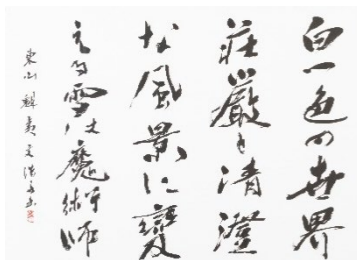 白一色の世界
荘厳で清澄
な風景に変
える雪は魔術師
東山